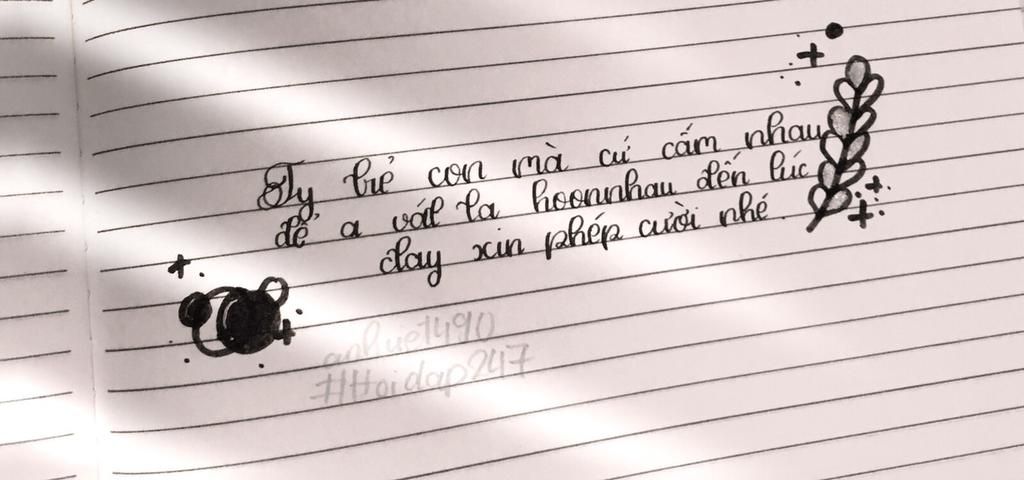 Ty bẻ con mà cứ cấm nhau
để a vát la hoonnhau đến lúc
đay xin phép cười nhé.
anhuet490
#Hoidap247